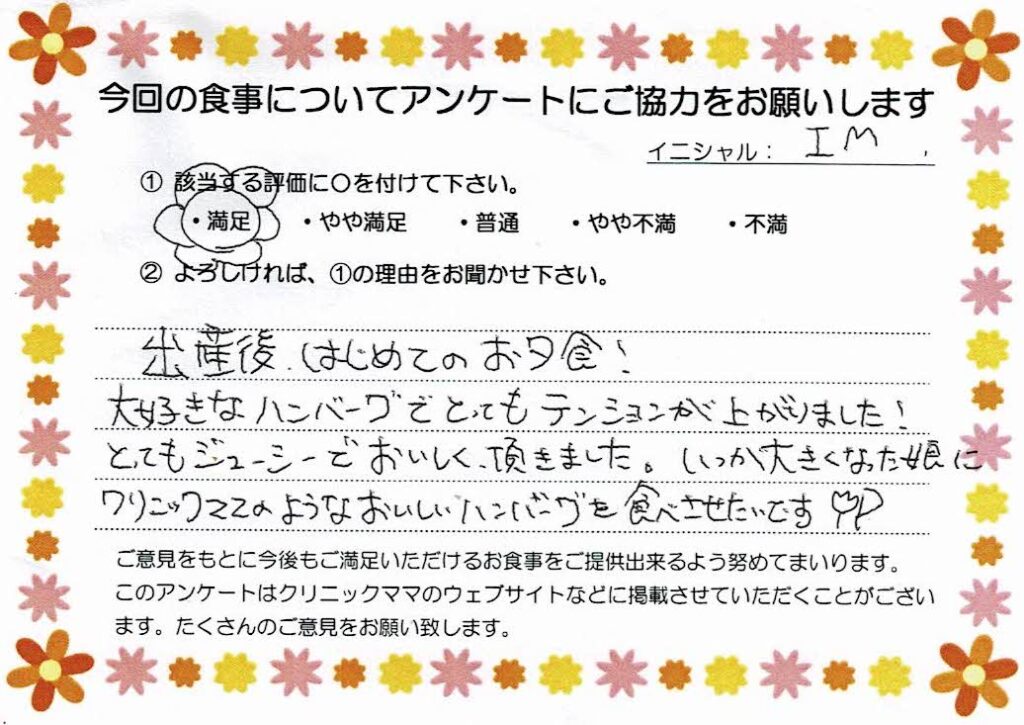 今回の食事についてアンケートにご協力をお願いします
イニシャル： I M
① 該当する評価に〇を付けて下さい。
・満足 ・やや満足 ・普通 ・やや不満 ・不満
② よろしければ、①の理由をお聞かせ下さい。
出産後、はじめてのお夕食！
大好きなハンバーグでとってもテンションが上がりました！
とってもジューシーでおいしく頂きました。いつか大きくなった娘に
クリニックママのようなおいしいハンバーグを食べさせたいです
ご意見をもとに今後もご満足いただけるお食事をご提供出来るよう努めてまいります。
このアンケートはクリニックママのウェブサイトなどに掲載させていただくことがござい
ます。たくさんのご意見をお願い致します。